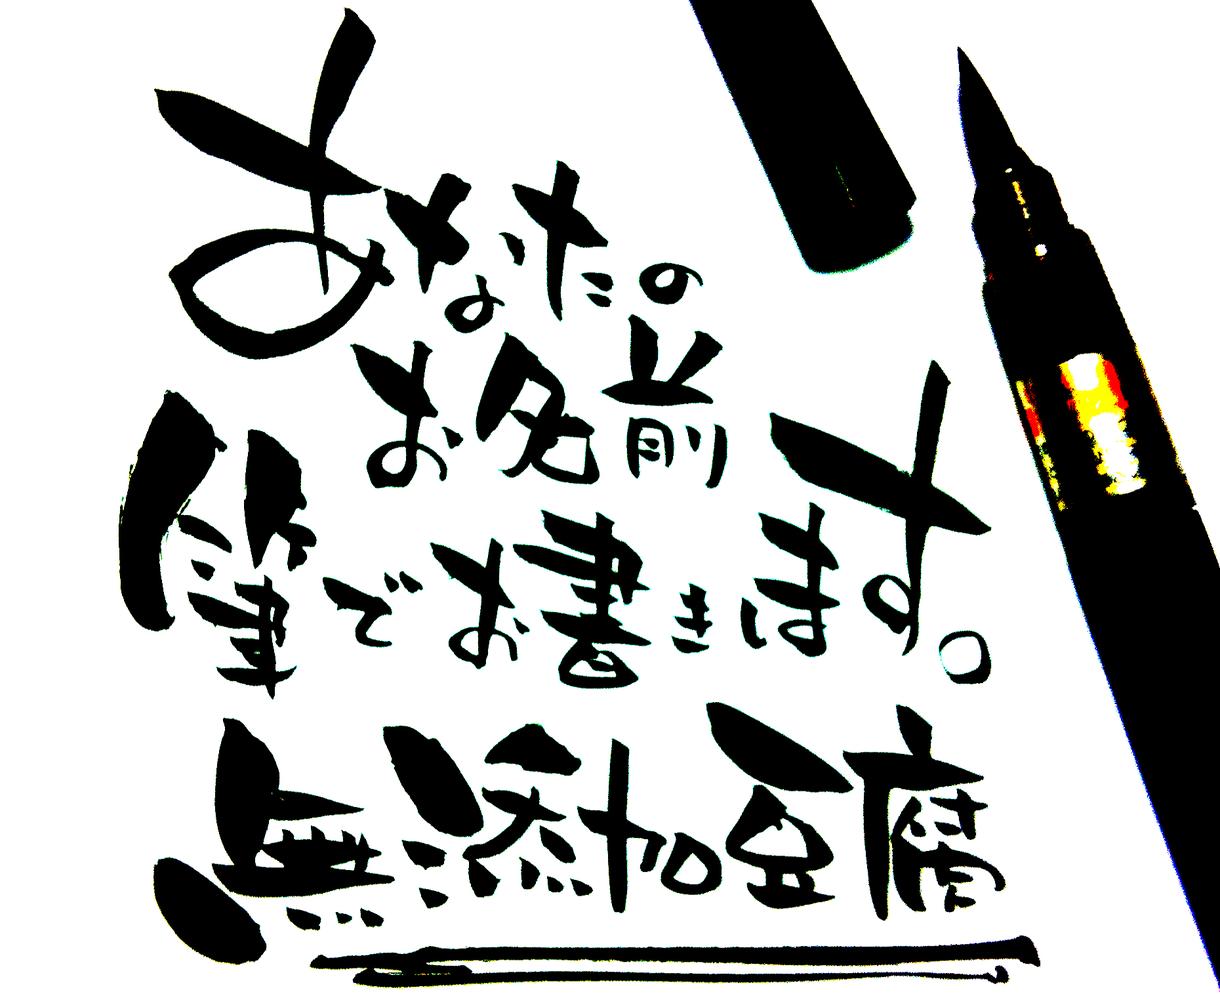 あなたの
お名前
筆でお書きます。
無添加豆腐